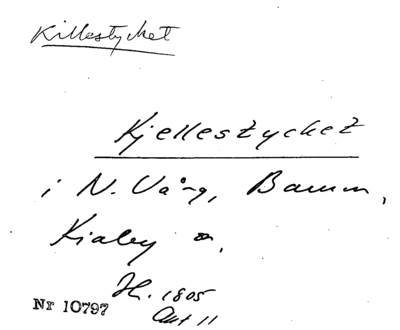 Killestycket
Kjellestycket
i N. Vång, Bamm,
Kiaby
H. 1805
Akt 11
Nr 10797